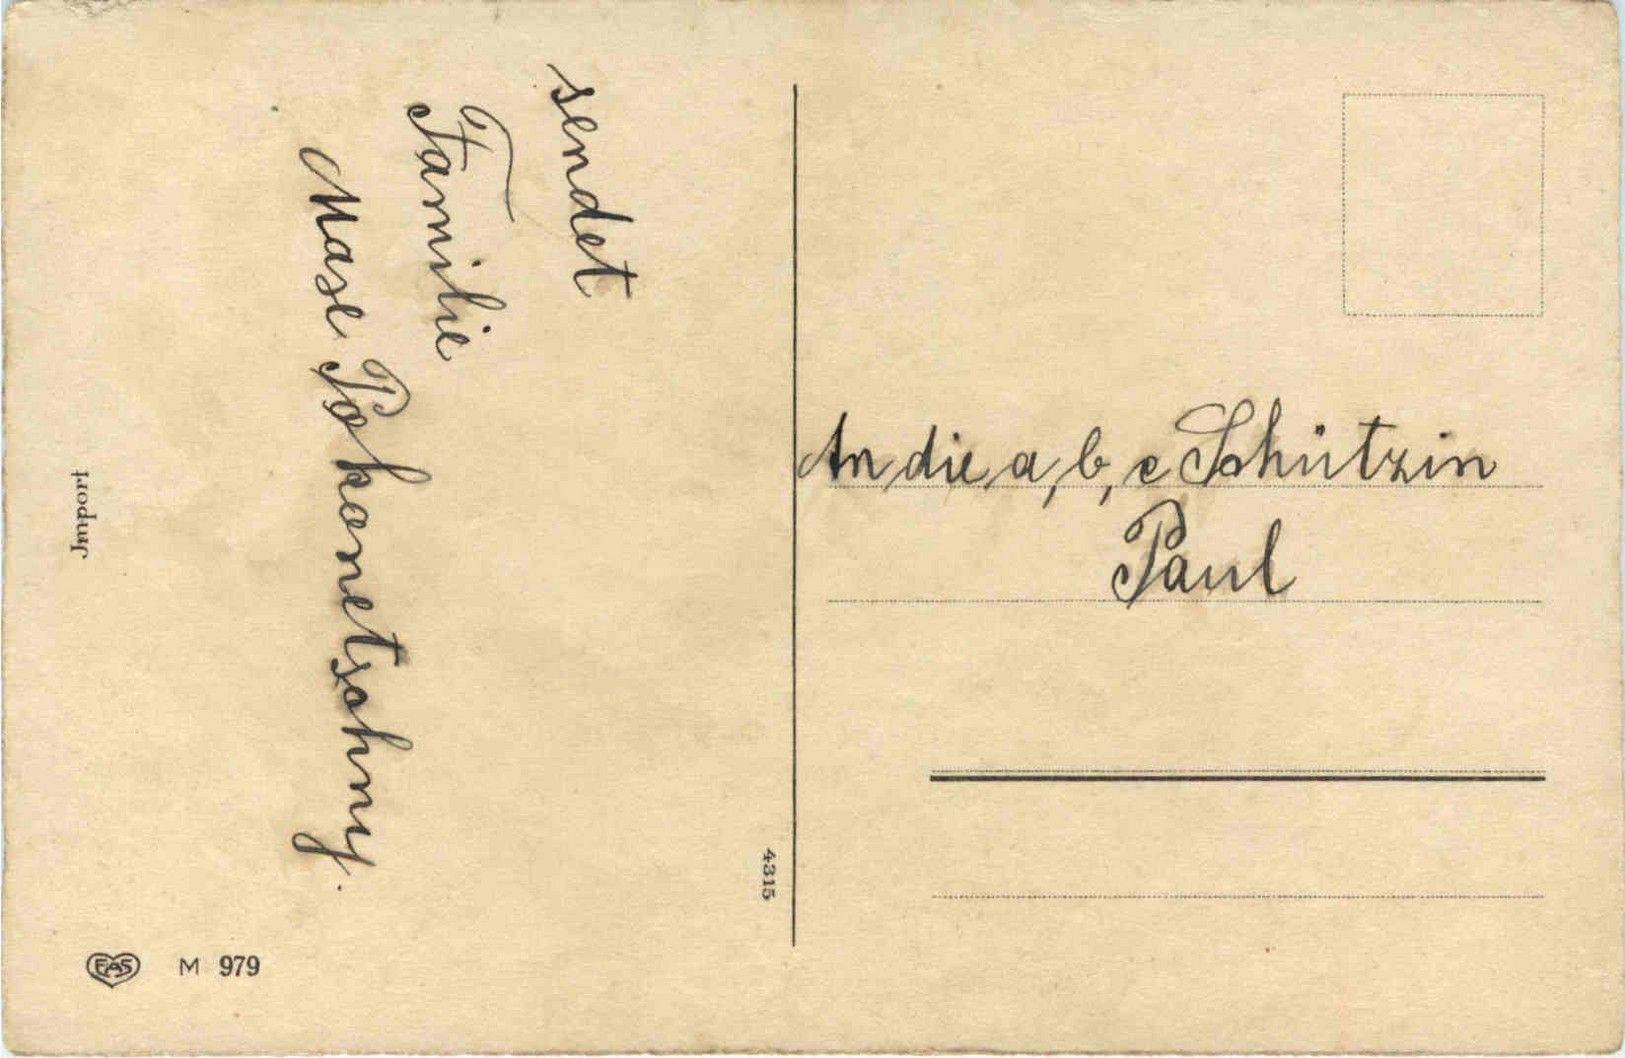 sendet
Familie
Mase Pokometschny.
An die a, b, c Schützin
Paul
Import
4315
EAS M 979